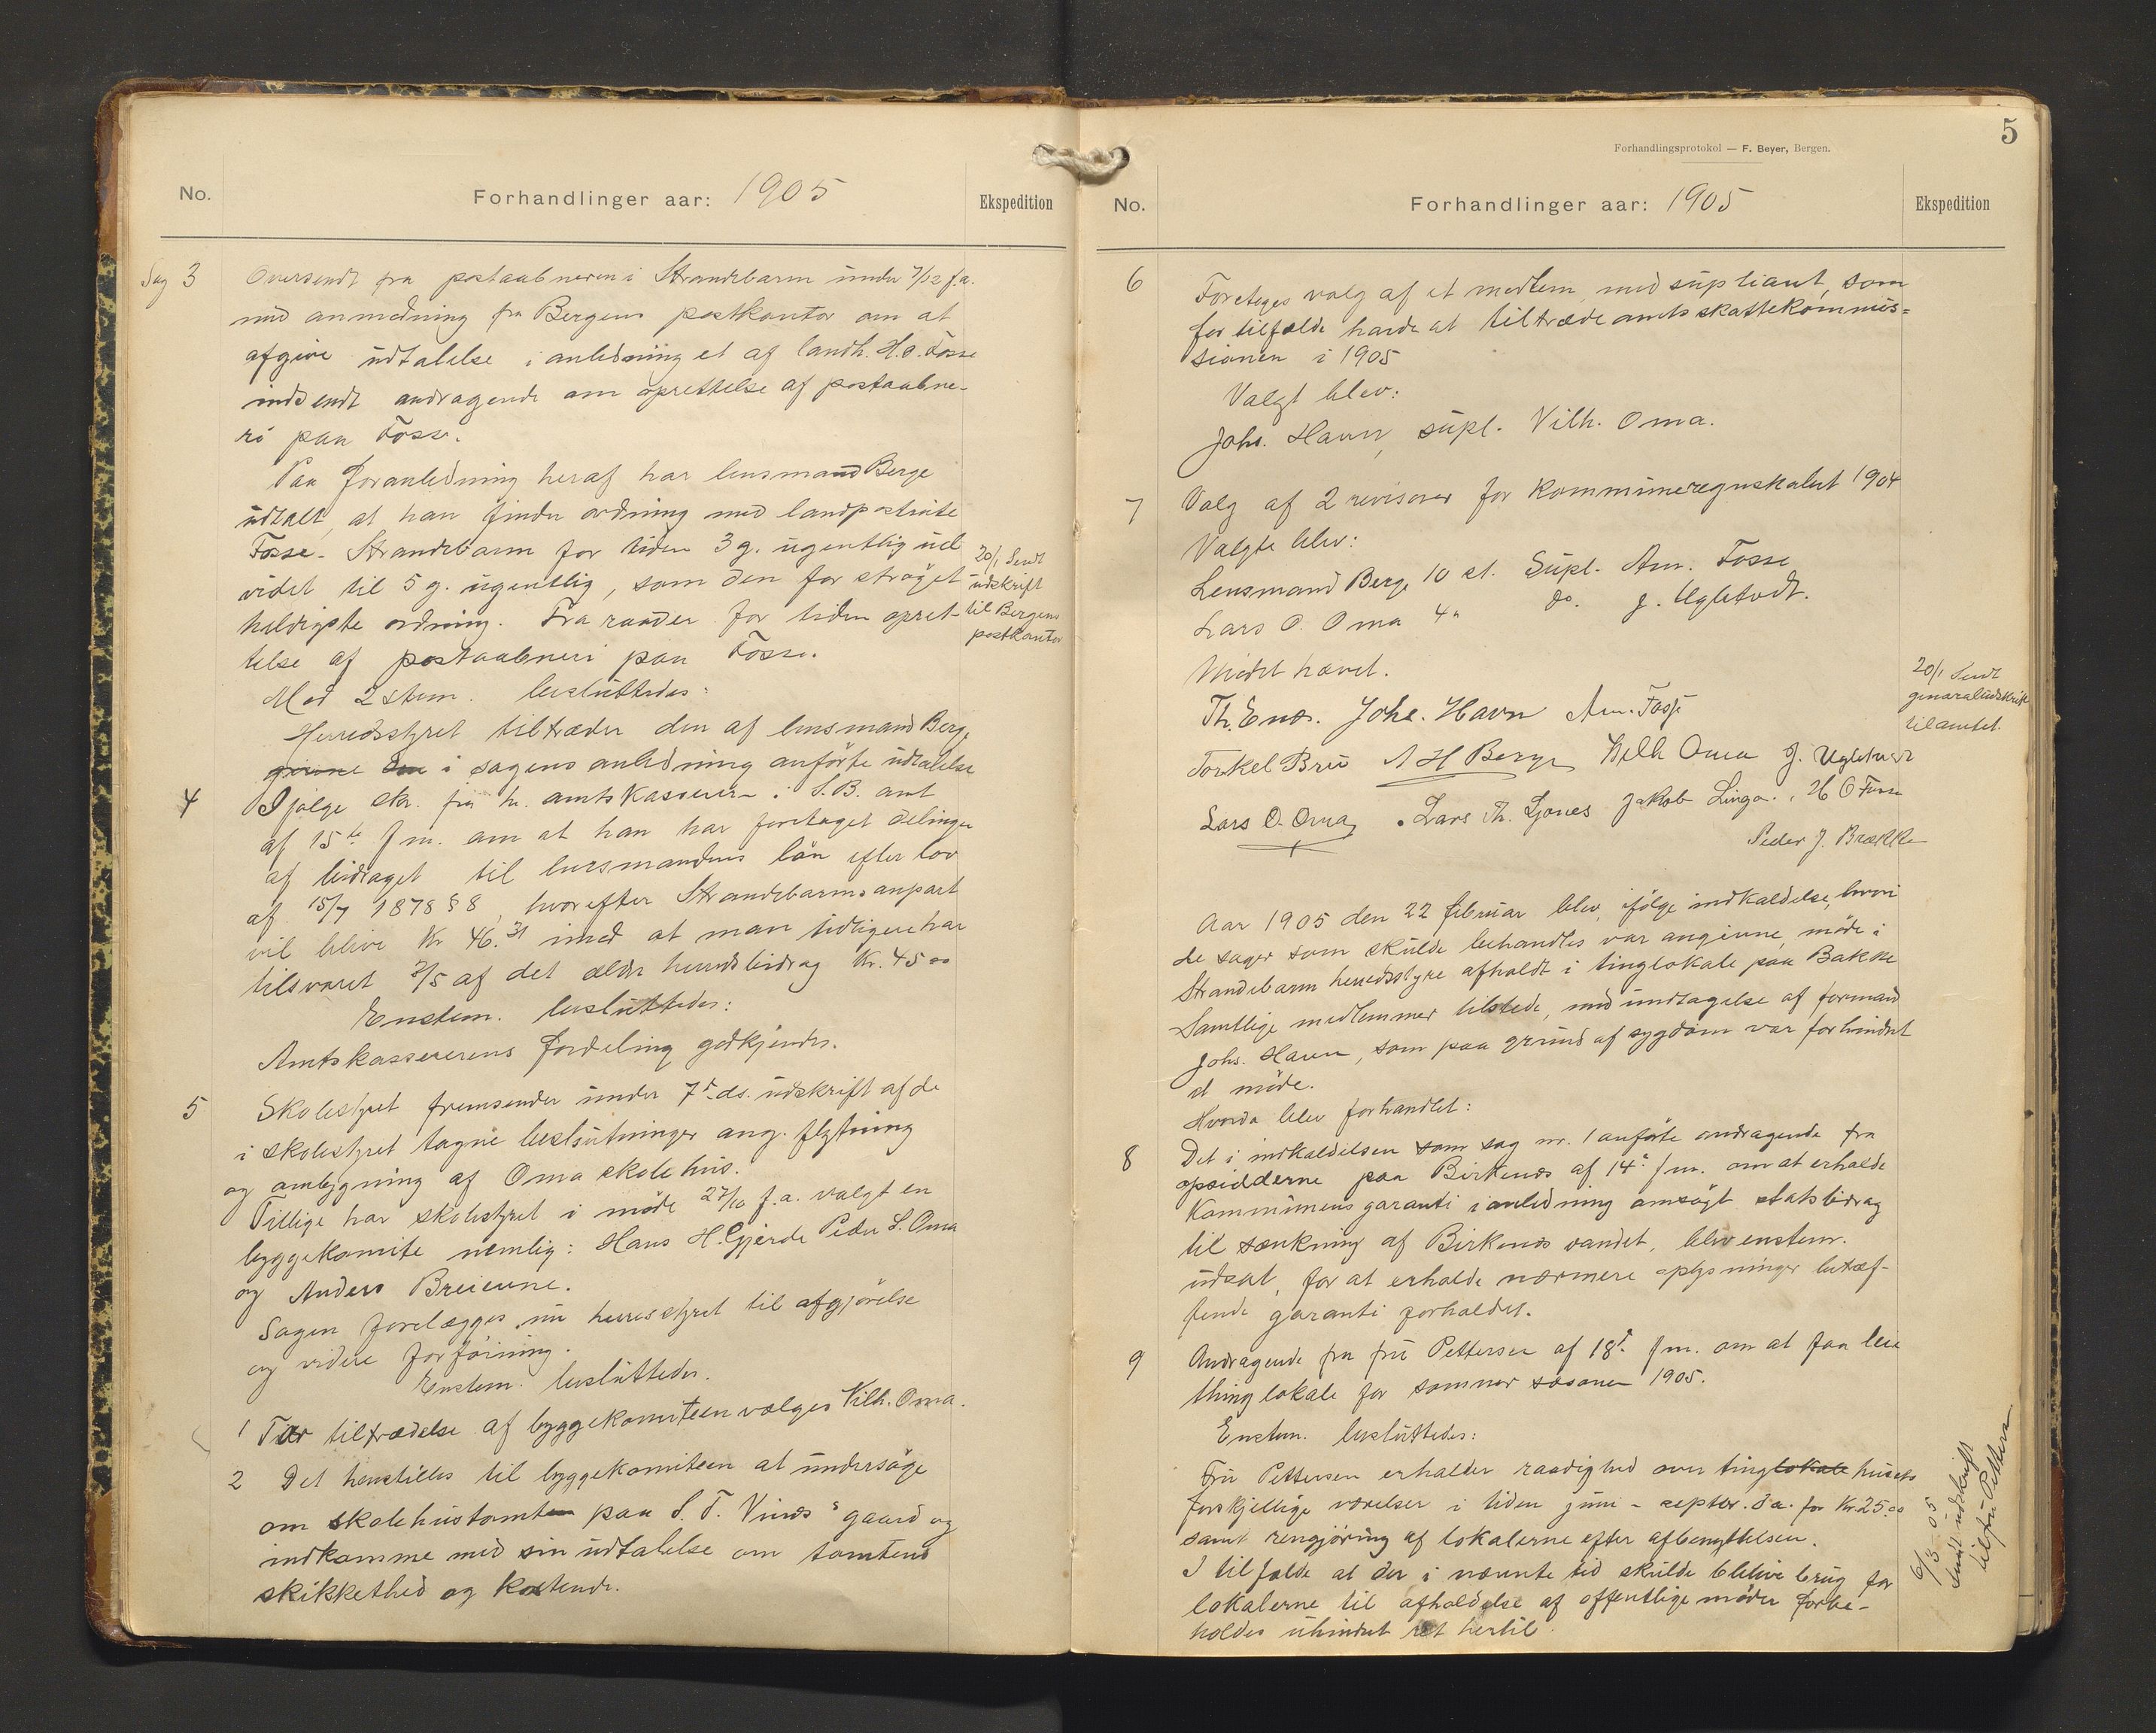 No.
Forhandlinger aar: 1905
Ekspedition
Sag 3
Oversendt fra postaabneren i Strandebarm under 7/12 f.a.
med anmodning fra Bergens postkontor om at
afgive udtalelse i anledning et af landh. H. O. Fosse
indsendt andragende om oprettelse af postaabne-
ri paa Fosse.
Paa foranledning heraf har lensmand Berge
udtalt, at han finder ordning med landpostrute
Fosse - Strandebarm for tiden 3 g. ugentlig ud-
videt til 5 g. ugentlig, som den for strøget
heldigste ordning. Fra raader for tiden opret-
telse af postaabneri paa Fosse.
20/1 Sendt
udskrift
til Bergens
postkontor
Med 2 stem. besluttedes:
Herredsstyret tiltræder den af lensmand Berge
givne i sagens anledning anførte udtalelse
4
Ifølge skr. fra hr. amtskasserer i S.B. amt
af 15de f m. om at han har foretaget delingen
af bidraget til lensmandens løn efter lov
af 15/7 1878 § 8, hvorefter Strandebarms anpart
vil blive Kr 46.31 imod at man tidligere har
tilsvaret 2/5 af det ældre herredsbidrag Kr. 45 00
Enstem. besluttedes:
Amtskassererens fordeling godkjendes.
5
Skolestyret fremsender under 7d. ds. udskrift af de
i skolestyret tagne beslutninger ang. flytning
og ombygning af Oma skolehus.
Tillige har skolestyret i møde 27/10 f.a. valgt en
byggekomite nemlig: Hans H. Gjerde Peder S. Oma
og Anders Breievne.
Sagen forelægges nu herredsstyret til afgjørelse
og videre forføining.
Enstem. besluttedes.
1 Til tiltrædelse af byggekomiteen vælges Vilh. Oma.
2 Det henstilles til byggekomiteen at undersøge
om skolehustomten paa S. T. Vinæs's gaard og
indkomme med sin udtalelse om tomtens
skikkethed og kostende.
5
Forhandlingsprotokol — F. Beyer, Bergen.
No.
Forhandlinger aar: 1905
Ekspedition
6
Foretages valg af et medlem med supliant, som
for tilfælde havde at tiltræde amtsskattekommis=
sionen i 1905
Valgt blev:
Johs. Havn, supl. Vilh. Oma.
7
Valg af 2 revisorer for kommuneregnskabet 1904
Valgte blev:
Lensmand Berge 10 st. Supl. Am. Fosse
Lars O. Oma 4 " do. J. Ugletvedt.
Mødet hævet.
20/1 Sendt
generaludskrift
til amtet.
Th. Enæs. Johs. Havn Am. Fosse
Torkel Bru A H Berge Vilh Oma J. Ugletvedt
Lars O. Oma . Lars Th. Ljones Jakob Linga. H O Fosse
Peder J. Brække
Aar 1905 den 22 februar blev, ifølge indkaldelse, hvori
de sager som skulde behandles var angivne, møde i
Strandebarm herredsstyre afholdt i tinglokale paa Bakke
Samtlige medlemmer tilstede, med undtagelse af formand
Johs. Havn, som paa grund af sygdom var forhindret
at møde.
Hvorda blev forhandlet:
8
Det i indkaldelsen som sag nr. 1 anførte andragende fra
opsidderne paa Birkenæs af 14d f m. om at erholde
Kommunens garanti i anledning ansøgt statsbidrag
til sænkning af Birkenæs vandet, blev enstem.
udsat, for at erholde nærmere oplysninger betræf-
fende garanti forholdet.
9
Andragende fra fru Pettersen af 18d f m. om at faa leie
thinglokale for sommer sæsonen 1905.
Enstem. besluttedes:
Fru Pettersen erholder raadighed over tinglokale husets
forskjellige værelser i tiden juni - septbr. d a. for Kr 25.00
samt rengjøring af lokalerne efter afbenyttelsen.
I tilfælde at der i nævnte tid skulde blive brug for
lokalerne til afholdelse af offentlige møder forbe-
holdes uhindret ret hertil.
6/3 05
Sendt udskrift
til fru Pettersen